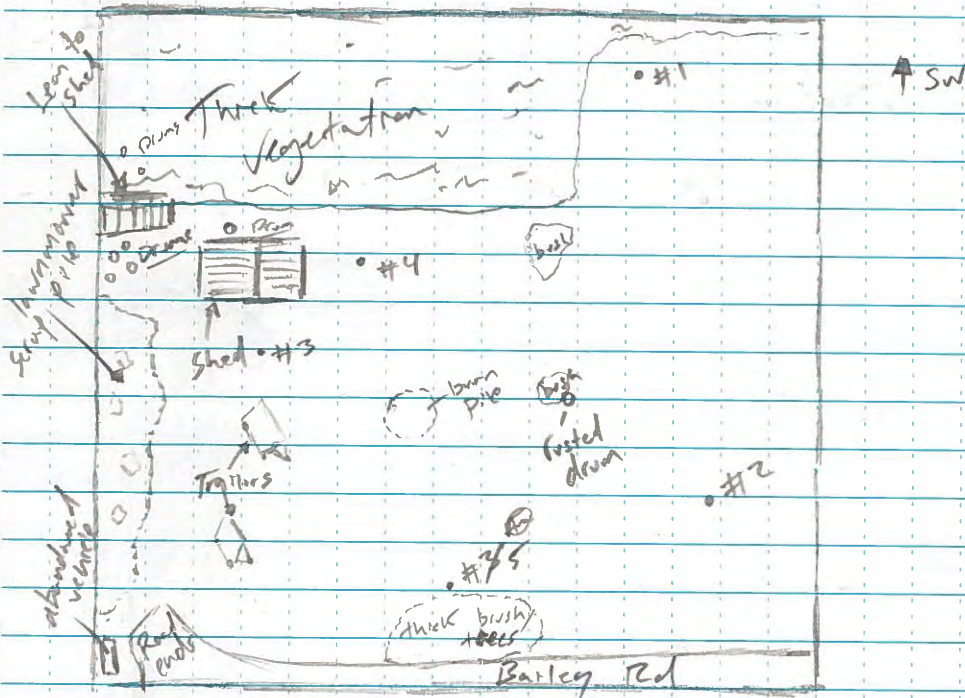 #1
SW
Lean to
shed
Drums
Thick
vegetation
Drum
Drums
brush
#4
Scrap lawnmower
pile
Shed
#3
burn
pile
brush
rusted
drum
Trailers
#2
#5
abandoned
vehicle
thick brush
trees
Road
ends
Barley Rd